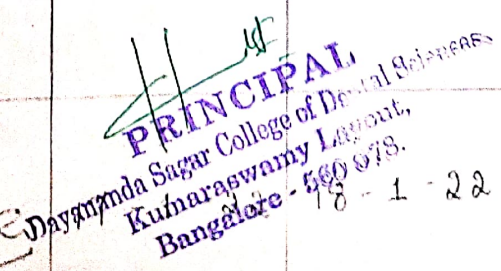 PRINCIPAL
Dayananda Sagar College of Dental Sciences
Kumaraswamy Layout,
Bangalore - 560 078.
18 - 1 - 22